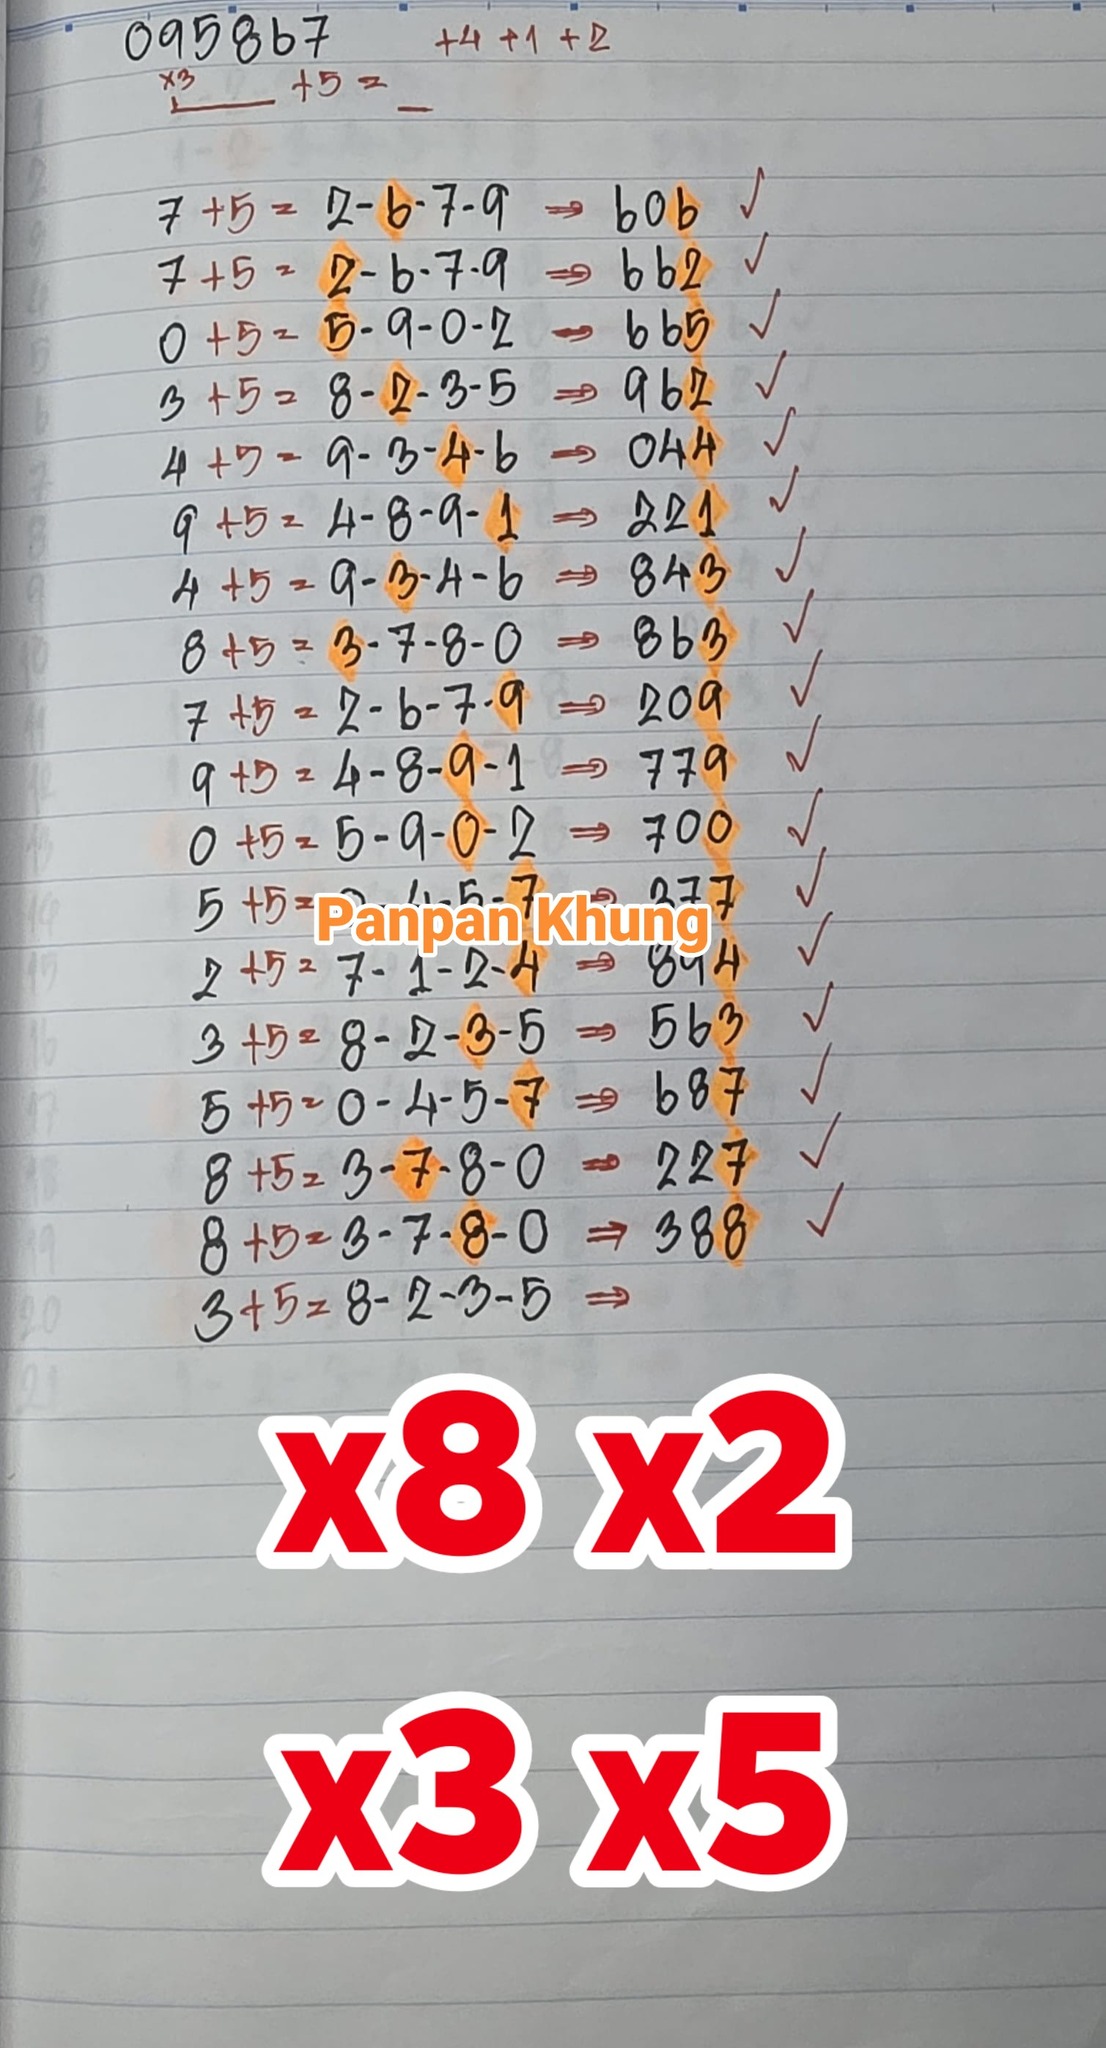 095867 +4 +1 +2
x3 +5 =
7 +5 = 2-6-7-9 ⇒ 606 ✓
7 +5 = 2-6-7-9 ⇒ 662 ✓
0 +5 = 5-9-0-2 ⇒ 665 ✓
3 +5 = 8-2-3-5 ⇒ 962 ✓
4 +5 = 9-3-4-6 ⇒ 044 ✓
9 +5 = 4-8-9-1 ⇒ 221 ✓
4 +5 = 9-3-4-6 ⇒ 843 ✓
8 +5 = 3-7-8-0 ⇒ 863 ✓
7 +5 = 2-6-7-9 ⇒ 209 ✓
9 +5 = 4-8-9-1 ⇒ 779 ✓
0 +5 = 5-9-0-2 ⇒ 700 ✓
5 +5 = 0-4-5-7 ⇒ 377 ✓
Panpan Khung
2 +5 = 7-1-2-4 ⇒ 894 ✓
3 +5 = 8-2-3-5 ⇒ 563 ✓
5 +5 = 0-4-5-7 ⇒ 687 ✓
8 +5 = 3-7-8-0 ⇒ 227 ✓
8 +5 = 3-7-8-0 ⇒ 388 ✓
3 +5 = 8-2-3-5 ⇒
x8 x2
x3 x5